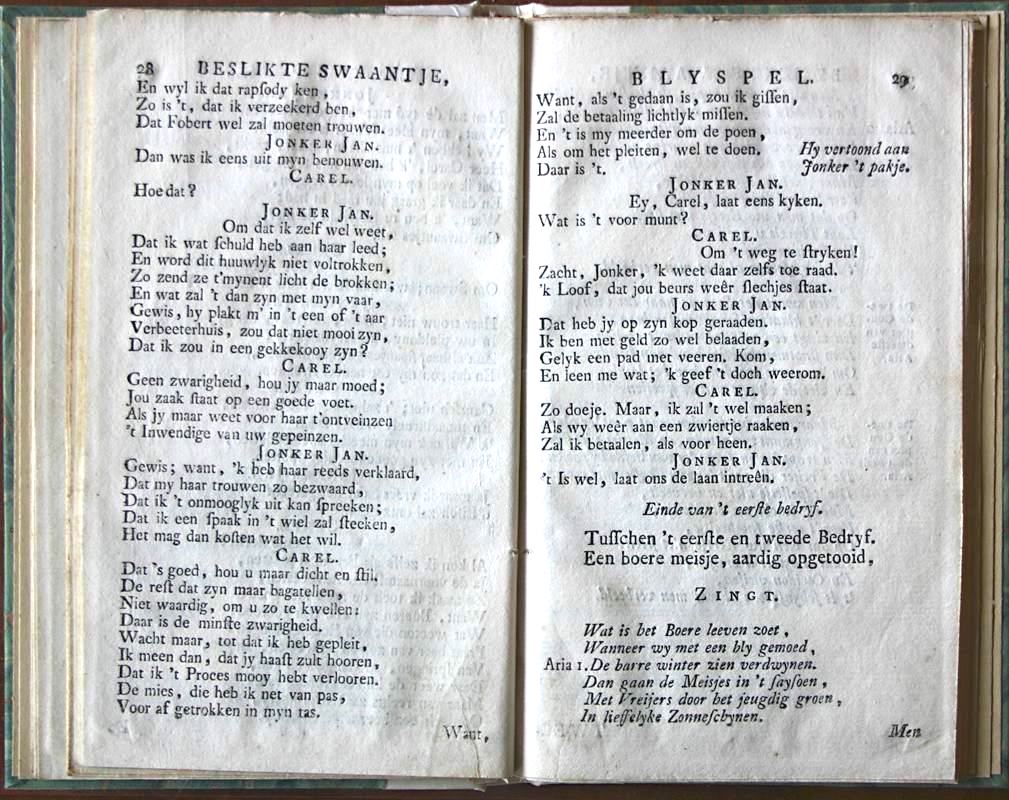 28 BESLIKTE SWAANTJE,
En wyl ik dat rapſody ken,
Zo is 't, dat ik verzeekerd ben,
Dat Fobert wel zal moeten trouwen.
JONKER JAN.
Dan was ik eens uit myn benouwen.
CAREL.
Hoe dat?
JONKER JAN.
Om dat ik zelf wel weet,
Dat ik wat ſchuld heb aan haar leed;
En word dit huuwlyk niet voltrokken,
Zo zend ze t'mynent licht de brokken;
En wat zal 't dan zyn met myn vaar,
Gewis, hy plakt m' in 't een of 't aar
Verbeeterhuis, zou dat niet mooi zyn,
Dat ik zou in een gekkekooy zyn?
CAREL.
Geen zwarigheid, hou jy maar moed;
Jou zaak ſtaat op een goede voet.
Als jy maar weet voor haar t'ontveinzen
't Inwendige van uw gepeinzen.
JONKER JAN.
Gewis; want, 'k heb haar reeds verklaard,
Dat my haar trouwen zo bezwaard,
Dat ik 't onmooglyk uit kan ſpreeken;
Dat ik een ſpaak in 't wiel zal ſteeken,
Het mag dan koſten wat het wil.
CAREL.
Dat 's goed, hou u maar dicht en ſtil,
De reſt dat zyn maar bagatellen,
Niet waardig, om u zo te kwellen:
Daar is de minſte zwarigheid.
Wacht maar, tot dat ik heb gepleit,
Ik meen dan, dat jy haaſt zult hooren,
Dat ik 't Proces mooy hebt verlooren.
De mies, die heb ik net van pas,
Voor af getrokken in myn tas.
Want,
BLYSPEL. 29
Want, als 't gedaan is, zou ik giſſen,
Zal de betaaling lichtlyk miſſen.
En 't is my meerder om de poen,
Als om het pleiten, wel te doen. Hy vertoond aan
Daar is 't. Jonker 't pakje.
JONKER JAN.
Ey, Carel, laat eens kyken.
Wat is 't voor munt?
CAREL.
Om 't weg te ſtryken!
Zacht, Jonker, 'k weet daar zelfs toe raad.
'k Loof, dat jou beurs weêr ſlechjes ſtaat.
JONKER JAN.
Dat heb jy op zyn kop geraaden.
Ik ben met geld zo wel belaaden,
Gelyk een pad met veeren. Kom,
En leen me wat; 'k geef 't doch weerom.
CAREL.
Zo doeje. Maar, ik zal 't wel maaken;
Als wy weêr aan een zwiertje raaken,
Zal ik betaalen, als voor heen.
JONKER JAN.
't Is wel, laat ons de laan intreên.
Einde van 't eerſte bedryf.
Tuſſchen 't eerſte en tweede Bedryf.
Een boere meisje, aardig opgetooid,
ZINGT.
Wat is het Boere leeven zoet,
Wanneer wy met een bly gemoed,
Aria 1. De barre winter zien verdwynen.
Dan gaan de Meisjes in 't ſayſoen,
Met Vreijers door het jeugdig groen,
In lieffelyke Zonneſchynen.
Men